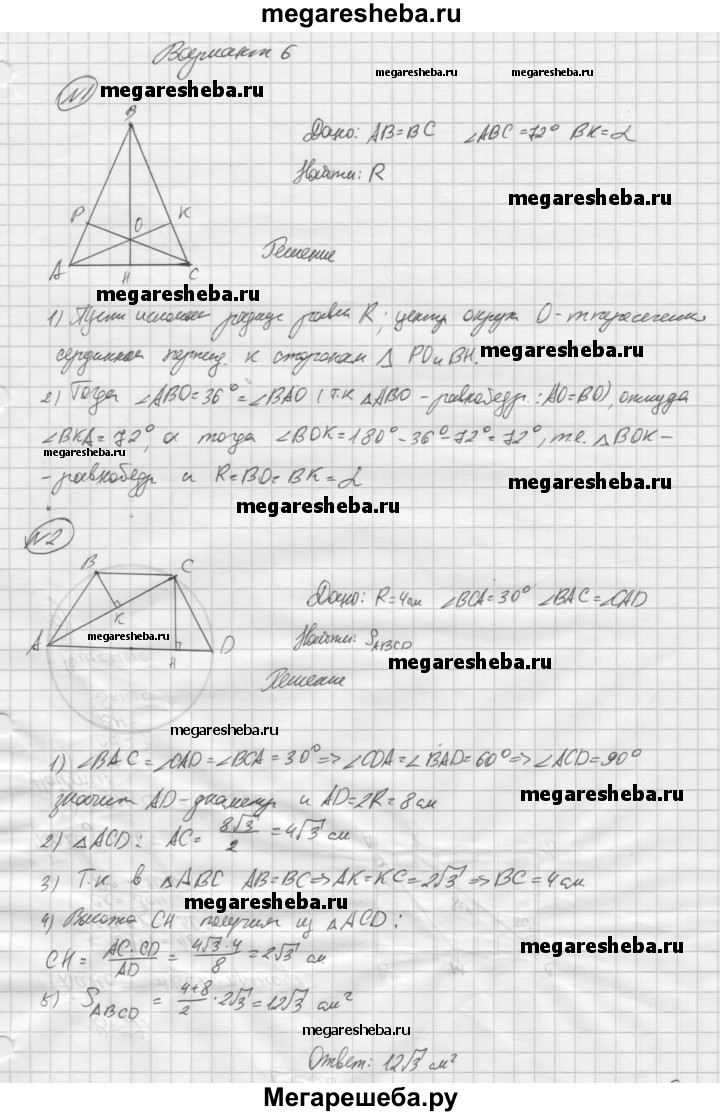 megaresheba.ru
Вариант 6
megaresheba.ru megaresheba.ru
№1 megaresheba.ru
B
Дано: AB=BC ∠ABC=72° BK=α
Найти: R
megaresheba.ru
P O K
Решение
A H C
megaresheba.ru
1) Пусть искомый радиус равен R; центр окруж O-т.пересечения
серединных перпенд. к сторонам Δ PO и BH.
megaresheba.ru
2) Тогда ∠ABO=36°=∠BAO (т.к ΔABO - равнобедр.: AO=BO), откуда
∠BKA=72°, а тогда ∠BOK=180°-36°-72°=72°, т.е. ΔBOK-
megaresheba.ru
-равнобедр и R=BO=BK=α
megaresheba.ru
megaresheba.ru
№2
B C
Дано: R=4см ∠BCA=30° ∠BAC=∠CAD
K
A megaresheba.ru H D
Найти: S_ABCD
megaresheba.ru
Решение
megaresheba.ru
1) ∠BAC=∠CAD=∠BCA=30°=>∠CDA=∠BAD=60°=>∠ACD=90°
megaresheba.ru
значит AD-диаметр и AD=2R=8см
2) ΔACD: AC= 8√3/2 =4√3 см
megaresheba.ru
3) Т.к в ΔABC AB=BC=>AK=KC=2√3=>BC=4см
megaresheba.ru
4) Высота CH получим из ΔACD:
megaresheba.ru
CH= AC·CD/AD = 4√3·4/8 =2√3 см
5) S_ABCD = 4+8/2 ·2√3=12√3 см²
megaresheba.ru
Ответ: 12√3 см²
Мегарешеба.ру